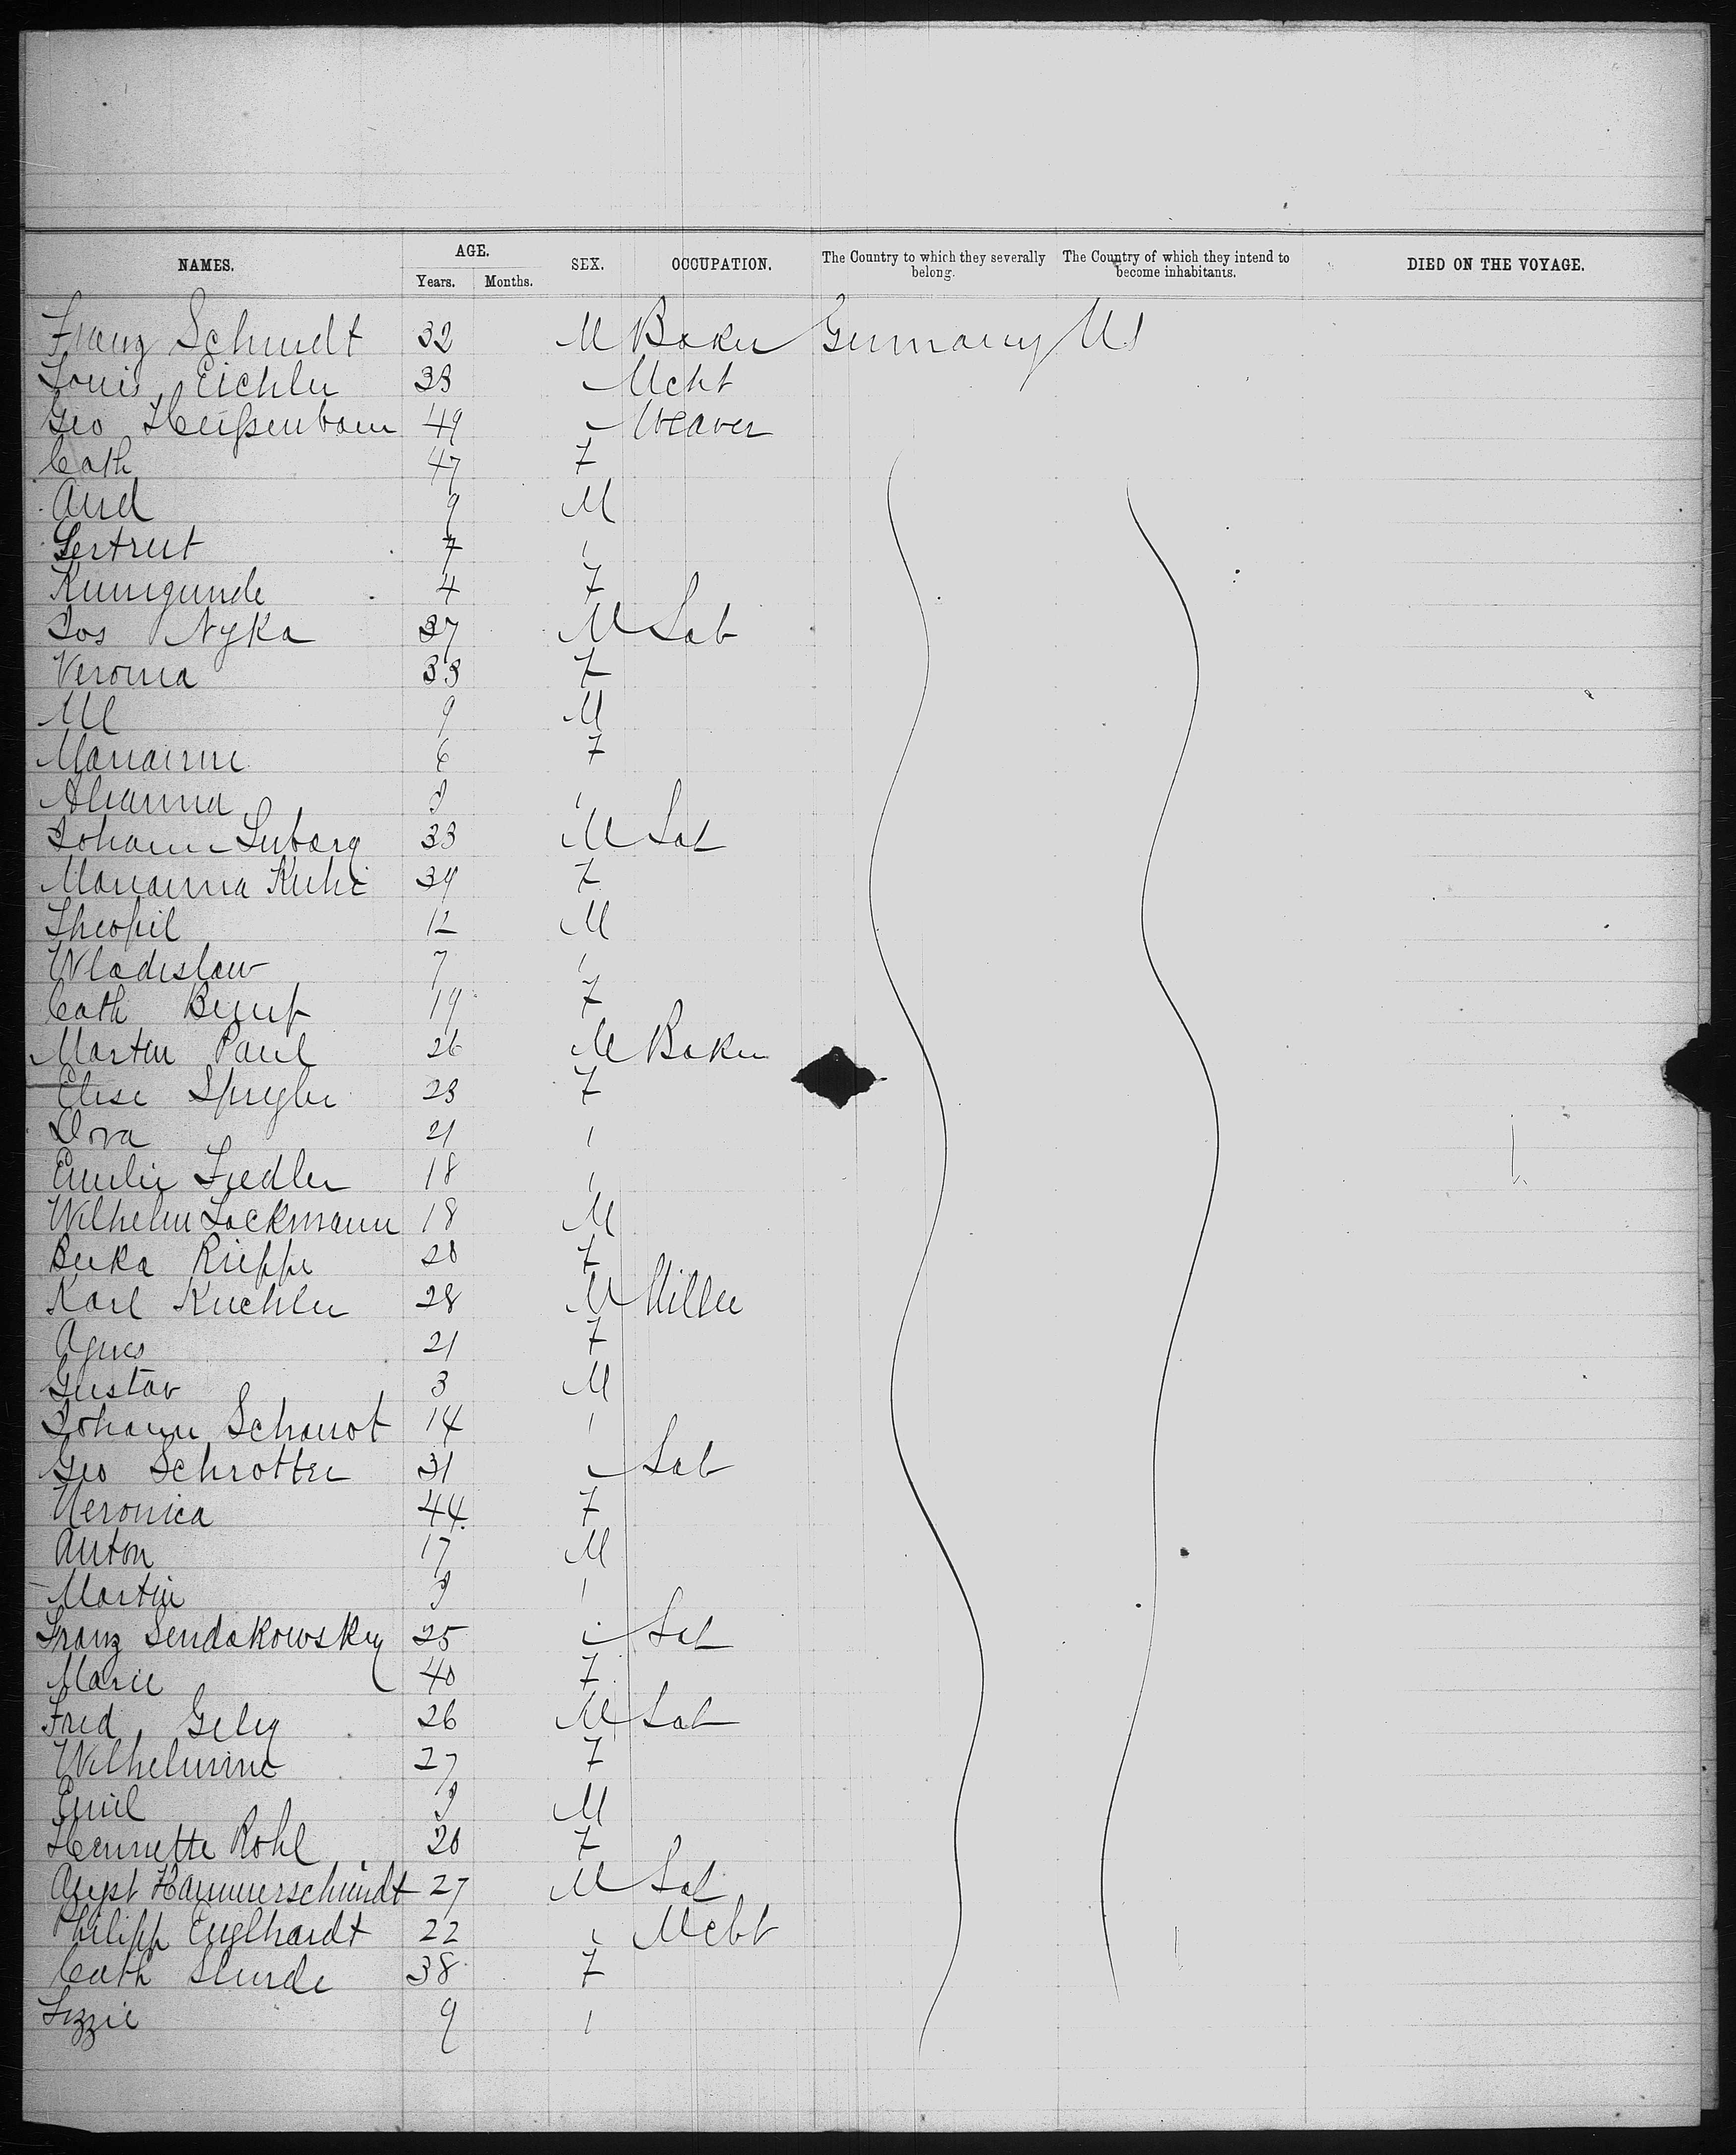 NAMES. AGE. SEX. OCCUPATION. The Country to which they severally belong. The Country of which they intend to become inhabitants. DIED ON THE VOYAGE.
Years. Months.
Franz Schmidt 32 M Baker Germany US
Louis Eichler 33 " Mcht
Geo Heißenbaum 49 " Weaver
Cath 47 F
And 9 M
Gertrut 7 "
Kunigunde 4 F
Jos Nyka 37 M Lab
Veronia 33 F
M 9 M
Marianne 6 F
Alianna "
Johann 33 M Lab
Marianna 34 F
Theofil 12 M
Wladislaw 7 "
Cath 19 F
Martin Paul 26 M Baker
Elise 23 F
Dora 21 "
Emilie Fiedler 18 "
Wilhelm Lockmann 18 M
Rieppe F
Karl Kuchler 28 M Miller
Agnes 21 F
Gustav 3 M
Johann 14 "
Geo Schrotter 31 " Lab
Veronica 44 F
Anton 17 M
Martin "
Franz Sendakowsky 25 " Lab
Marie 40 F
Fred Gelig 26 M Lab
Wilhelmine 27 F
Emil M
Henriette Rohl 20 F
August Hammerschmidt 27 M Lab
Philipp Englhardt 22 " Mcht
Cath 38 F
Lizzie 9 "